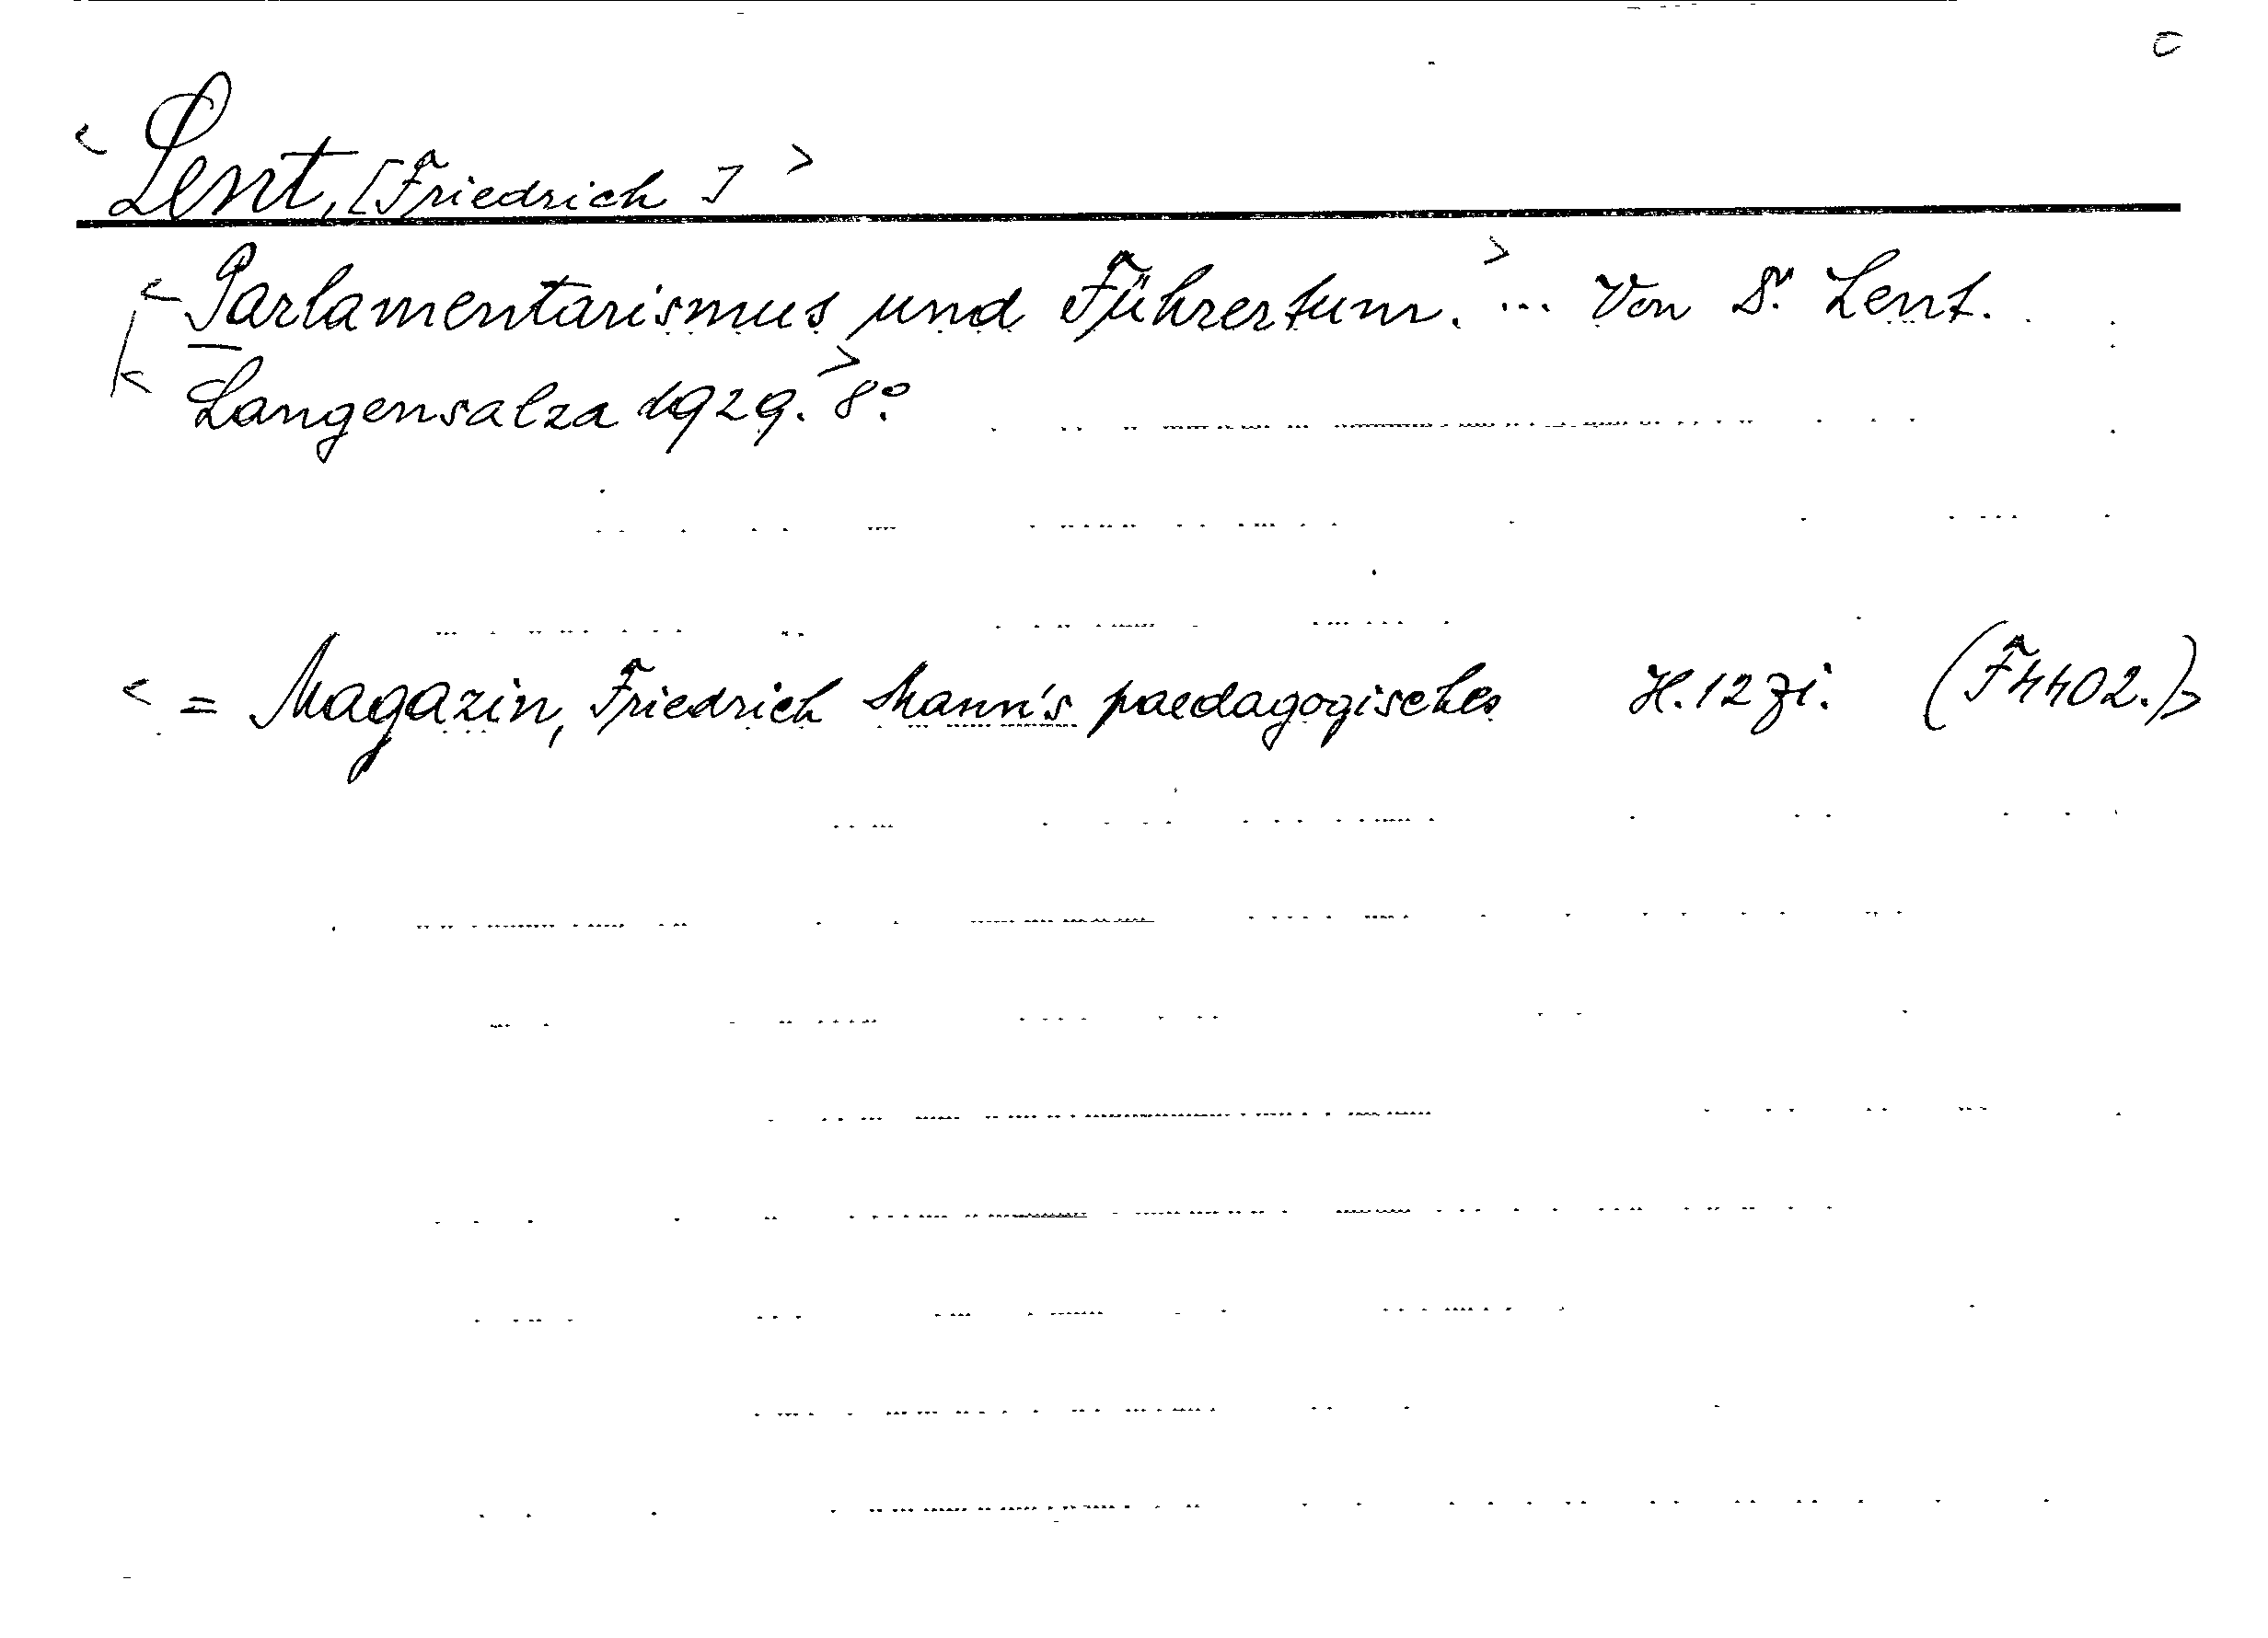 < Lent, [Friedrich] >
< Parlamentarismus und Führertum. > ... Von Dr. Lent.
< Langensalza 1929. > 8°
< = Magazin, Friedrich Mann's paedagogisches H. 12 (F4402.) >